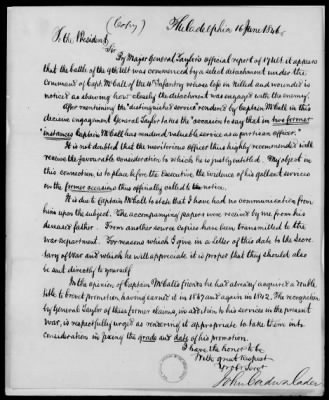 (Copy) Philadelphia 16 June 1846
To the President,
Sir
By Major General Taylor's official report of 17 ult. it appears
that the battle of the 9th ult was commenced by a select detachment under the
command of Capt. McCall of the 4th Infantry whose loss in killed and wounded is
noticed as shewing how closely the detachment was engaged with the enemy.
After mentioning the "distinguished service" rendered by Captain McCall in this
decisive engagement General Taylor takes the "occasion to say that in two former
instances Captain McCall has rendered valuable service as a partisan officer."
It is not doubted that the meritorious officer thus highly recommended will
receive the favourable consideration to which he is justly entitled. My object in
this connection, is to place before the Executive the evidence of his gallant services
on the former occasions thus officially called to the notice.
It is due to Captain McCall to state that I have had no communication from
him upon the subject. The accompanying papers were received by me from his
deceased father. From another source copies have been transmitted to the
War department. For reasons which I give in a letter of this date to the Secre
tary of War and which he will appreciate it is proper that they should also
be sent directly to yourself
In the opinion of Captain McCall's friends he had already acquired a double
title to brevet promotion, having earned it in 1837 and again in 1842. The recognition
by General Taylor of these former claims, in addition to his services in the present
War, is respectfully urged as rendering it appropriate to take them into
consideration in fixing the grade and date of his promotion.
I have the honor to be
With great respect
Your obt Servt
John Cadwalader